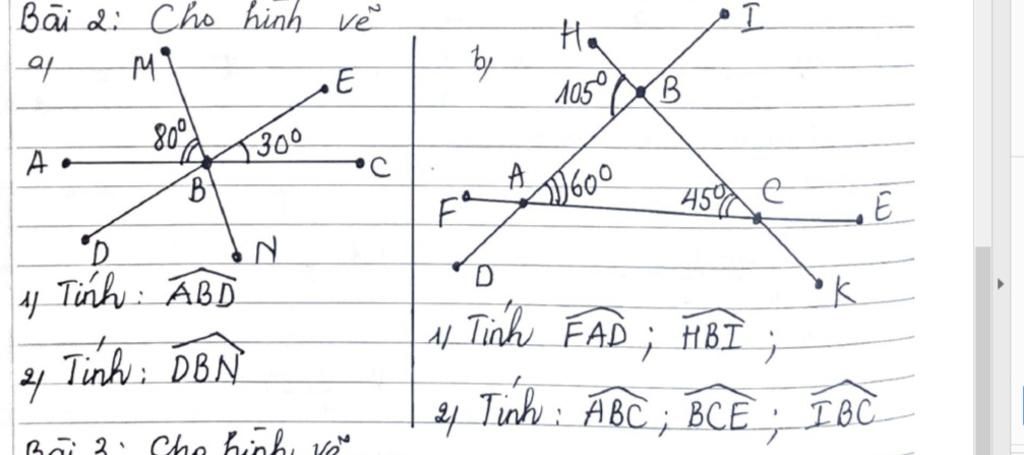 Bài 2: Cho hình vẽ
a)
M
E
80°
30°
A
C
B
D
N
1) Tính: ABD
2) Tính: DBN
b)
H
I
105°
B
A
60°
45°
C
F
E
D
K
1) Tính FAD ; HBI ;
2) Tính: ABC ; BCE ; IBC
Bài 3: Cho hình vẽ